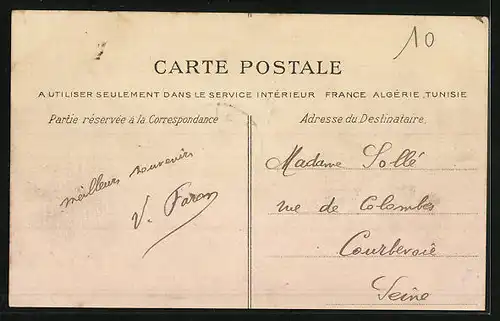 10
CARTE POSTALE
A UTILISER SEULEMENT DANS LE SERVICE INTÉRIEUR FRANCE ALGÉRIE, TUNISIE
Partie réservée à la Correspondance
meilleurs souvenirs
V. Faron
Adresse du Destinataire,
Madame Sollé
rue de Colombes
Courbevoie
Seine